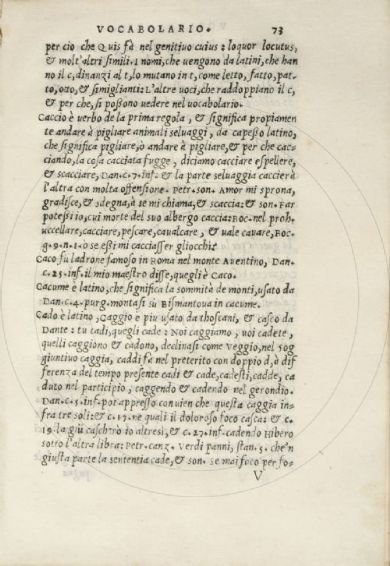 VOCABOLARIO. 73
per cio che Quis fà nel genitiuo cuius: loquor locutus,
& molt'altri simili. I nomi, che uengono da latini, che han
no il c, dinanzi al t, lo mutano in t, come letto, fatto, pat-
to, otto, & simiglianti: L'altre uoci, che raddoppiano il c,
& per che, si possono uedere nel uocabolario.
Caccio è uerbo de la prima regola, & significa propiamen
te andare à pigliare animali seluaggi, da capesso latino,
che significa pigliare, iò andare à pigliare, & per che cac-
ciando, la cosa cacciata fugge, diciamo cacciare espellere,
& scacciare, Dan. c. 7. inf. & la parte seluaggia caccierà
l'altra con molta offensione. petr. son. Amor mi sprona,
gradisce, & sdegna, à se mi chiama, & scaccia: & son. Far
potess'io, cui morte del suo albergo caccia: Boc. nel proh.
uccellare, cacciare, pescare, caualcare, & uale cauare, Boc.
g. 9. n. 1. o se essi mi cacciasser gliocchi.
Caco fu ladrone famoso in Roma nel monte Auentino, Dan.
c. 25. inf. il mio maestro disse, quegli è Caco.
Cacume è latino, che significa la sommità de monti, usato da
Dan. c. 4. purg. montasi sù Bismantoua in cacume.
Cado è latino, Caggio è piu usato da thoscani, & casco da
Dante: tu cadi, quegli cade: Noi caggiamo, uoi cadete,
quelli caggiono & cadono, declinasi come Veggio, nel sog
giuntiuo caggia, caddi fà nel preterito con doppio d, à dif
ferenza del tempo presente cadi & cade, cadesti, cadde, ca
duto nel participio, caggendo & cadendo nel gerondio.
Dan. c. 5. inf. por appresso conuien che questa caggia in-
fra tre soli: & c. 17. ne quali il doloroso foco casca: & c.
19. la giù cascherò io altresi, & c. 27. inf. cadendo Hibero
sotto l'altra libra: petr. canz. Verdi panni, stan. 5. che'n
giusta parte la sententia cade, & son. se mai foco per fo-
V